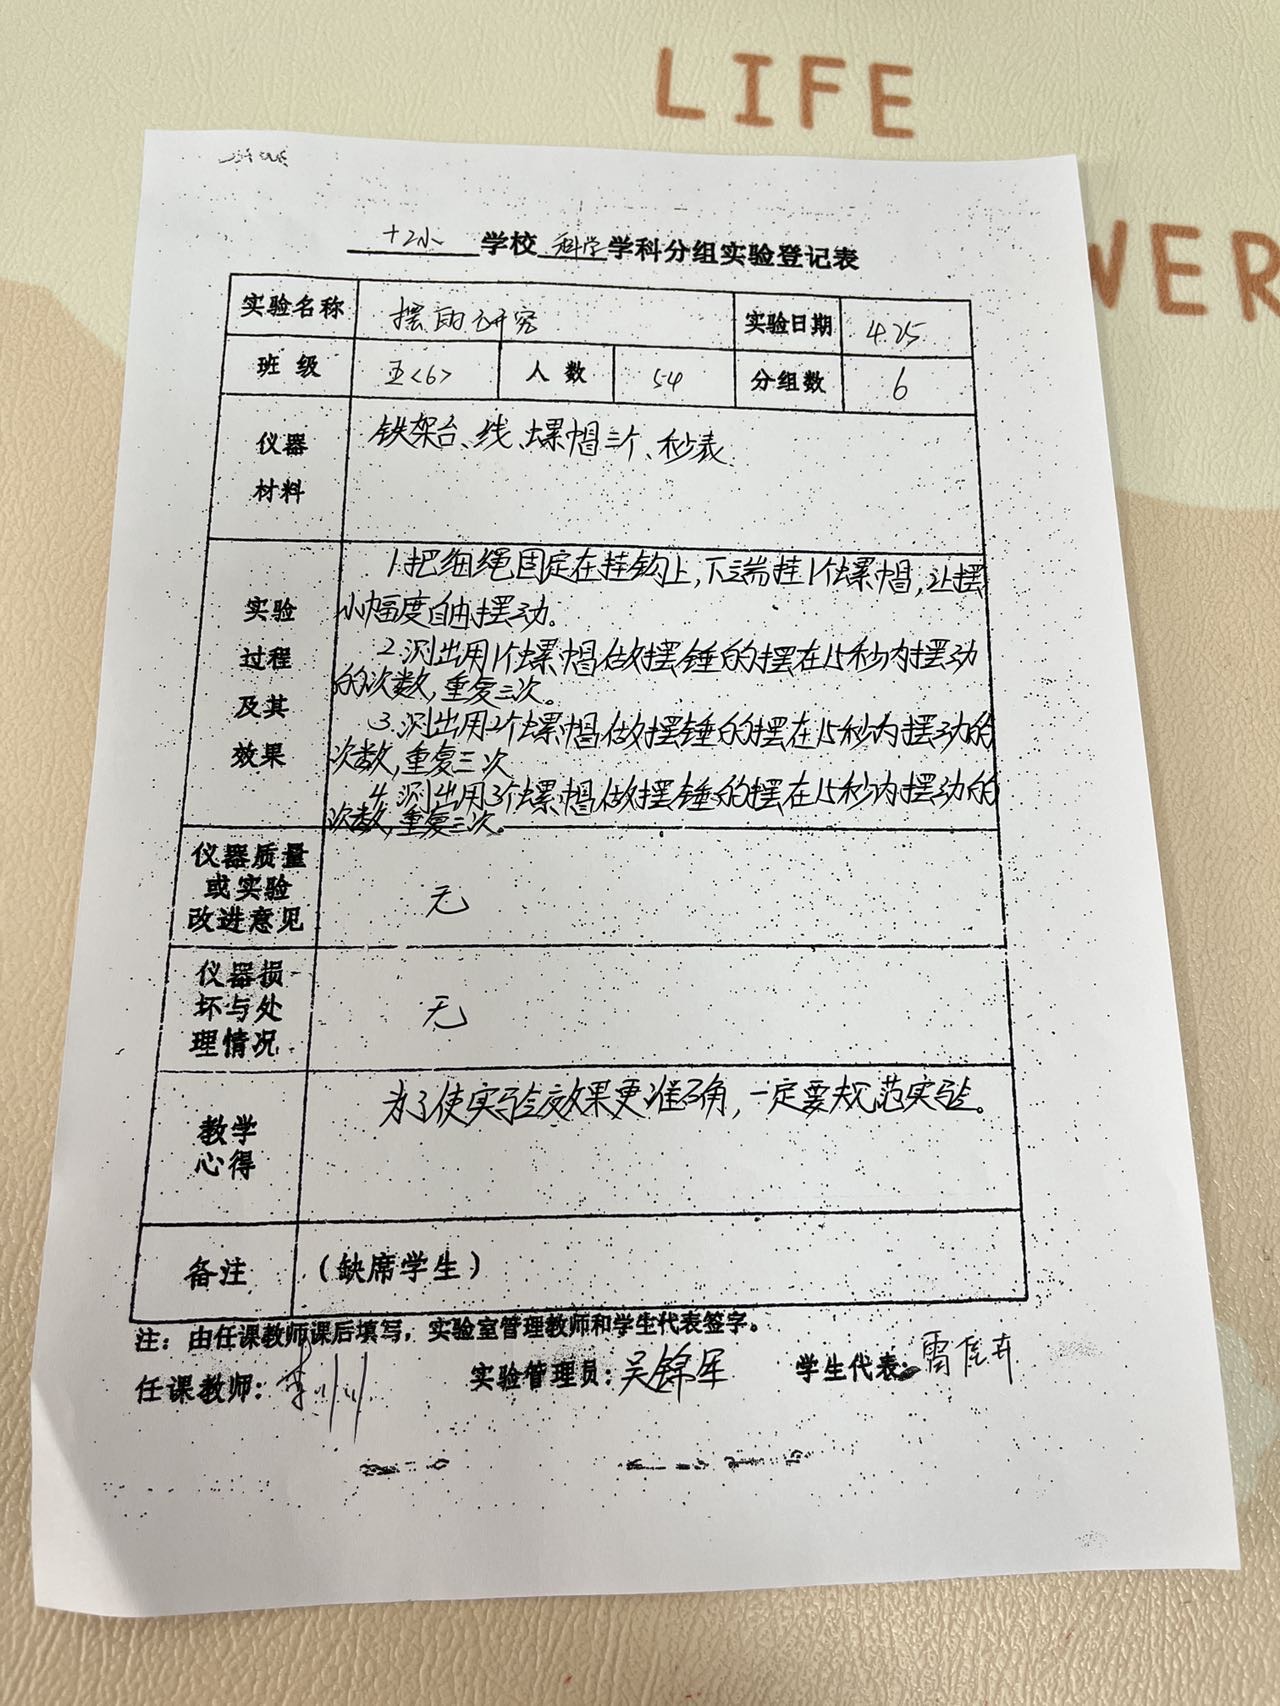 LIFE
WER
十二小学校科学学科分组实验登记表
实验名称 摆的研究 实验日期 4.25
班级 五<6> 人数 54 分组数 6
仪器 铁架台、线、螺帽三个、秒表
材料
1.把细绳固定在挂钩上,下端挂1个螺帽,让摆
实验 小幅度自由摆动。
过程 2.测出用1个螺帽做摆锤的摆在15秒内摆动
的次数,重复三次。
及其 3.测出用2个螺帽做摆锤的摆在15秒内摆动的
效果 次数,重复三次
4.测出用3个螺帽做摆锤的摆在15秒内摆动的
次数,重复三次。
仪器质量
或实验 无
改进意见
仪器损
坏与处 无
理情况
为了使实验效果更准确,一定要规范实验。
教学
心得
备注 (缺席学生)
注:由任课教师课后填写,实验室管理教师和学生代表签字。
任课教师: 实验管理员:吴锦军 学生代表:雷